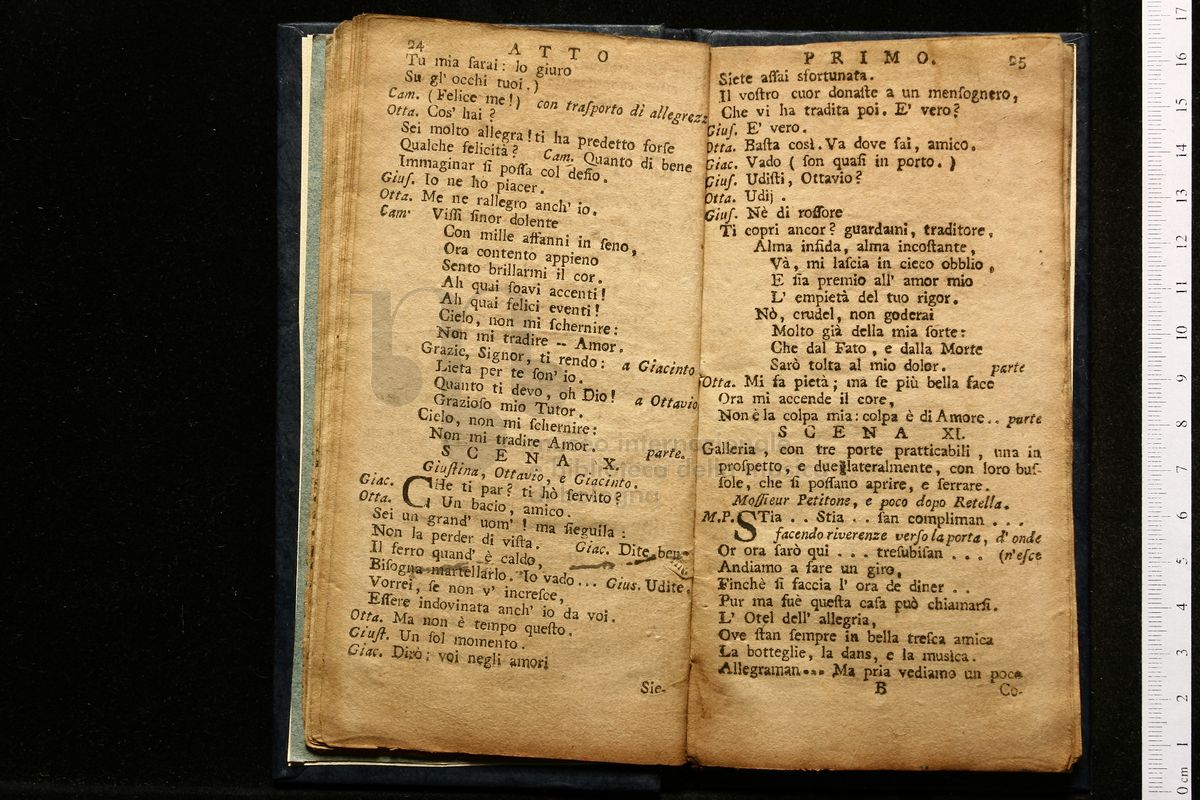 24 ATTO
Tu mia ſarai: lo giuro
Su gl' occhi tuoi.)
Cam. (Felice me!) con traſporto di allegrezz
Otta. Cos' hai?
Sei molto allegra! ti ha predetto forſe
Qualche felicità? Cam. Quanto di bene
Immaginar ſi poſſa col deſio.
Giuſ. Io ne ho piacer.
Otta. Me ne rallegro anch' io.
Cam. Viſſi ſinor dolente
Con mille affanni in ſeno,
Ora contento appieno
Sento brillarmi il cor.
Ah quai ſoavi accenti!
Ah quai felici eventi!
Cielo, non mi ſchernire:
Non mi tradire -- Amor.
Grazie, Signor, ti rendo: a Giacinto
Lieta per te ſon' io.
Quanto ti devo, oh Dio! a Ottavio
Grazioſo mio Tutor.
Cielo, non mi ſchernire:
Non mi tradire Amor. parte.
SCENA X.
Giuſtina, Ottavio, e Giacinto.
Giac. CHe ti par? ti hò ſervito?
Otta. Un bacio, amico.
Sei un grand' uom'! ma ſieguila:
Non la perder di viſta. Giac. Dite ben
Il ferro quand' è caldo,
Biſogna martellarlo. Io vado... Gius. Udite,
Vorrei, ſe non v' increſce,
Eſſere indovinata anch' io da voi.
Otta. Ma non è tempo queſto.
Giuſt. Un ſol momento.
Giac. Dirò: voi negli amori
Sie-
PRIMO. 25
Siete aſſai sfortunata.
Il voſtro cuor donaſte a un menſognero,
Che vi ha tradita poi. E' vero?
Giuſ. E' vero.
Otta. Baſta così. Va dove ſai, amico.
Giac. Vado (ſon quaſi in porto.)
Giuſ. Udiſti, Ottavio?
Otta. Udij.
Giuſ. Nè di roſſore
Ti copri ancor? guardami, traditore,
Alma infida, alma incoſtante,
Và, mi laſcia in cieco obblio,
E ſia premio all' amor mio
L' empietà del tuo rigor.
Nò, crudel, non goderai
Molto già della mia ſorte:
Che dal Fato, e dalla Morte
Sarò tolta al mio dolor. parte
Otta. Mi fa pietà; ma ſe più bella face
Ora mi accende il core,
Non è la colpa mia: colpa è di Amore.. parte
SCENA XI.
Galleria, con tre porte pratticabili, una in
proſpetto, e due lateralmente, con loro buſ-
ſole, che ſi poſſano aprire, e ferrare.
Moſſieur Petitone, e poco dopo Retella.
M.P. STia . . Stia . . ſan compliman . . .
facendo riverenze verſo la porta, d' onde
Or ora ſarò qui . . . treſubiſan . . . (n'eſce
Andiamo a fare un giro,
Finchè ſi faccia l' ora de diner . .
Pur ma fuè queſta caſa può chiamarſi.
L' Otel dell' allegria,
Ove ſtan ſempre in bella treſca amica
La botteglie, la dans, e la muſica.
Allegraman... Ma pria vediamo un poco
B Co-